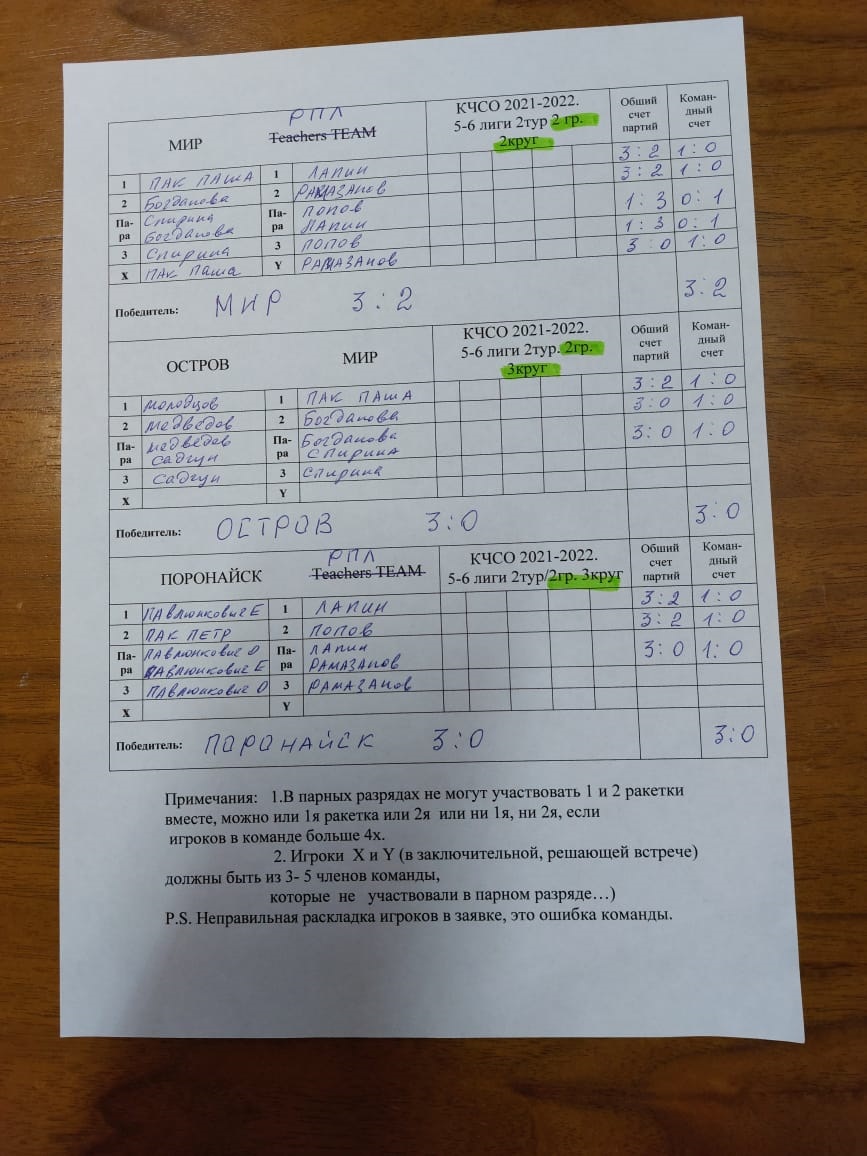 МИР РПЛ Teachers TEAM КЧСО 2021-2022. 5-6 лиги 2тур 2 гр. 2круг Общий счет партий Коман-дный счет
1 ПАК ПАША 1 ЛАПИН 3:2 1:0
2 Богданова 2 РАМАЗАНОВ 3:2 1:0
Па-ра Спирина Богданова Па-ра ПОПОВ ЛАПИН 1:3 0:1
3 Спирина 3 ПОПОВ 1:3 0:1
X ПАК Паша Y РАМАЗАНОВ 3:0 1:0
Победитель: МИР 3:2 3:2
ОСТРОВ МИР КЧСО 2021-2022. 5-6 лиги 2тур. 2гр. 3круг Общий счет партий Коман-дный счет
1 Молодцов 1 ПАК ПАША 3:2 1:0
2 Медведев 2 Богданова 3:0 1:0
Па-ра Медведев Садгун Па-ра Богданова Спирина 3:0 1:0
3 Садгун 3 Спирина
X Y
Победитель: ОСТРОВ 3:0 3:0
ПОРОНАЙСК РПЛ Teachers TEAM КЧСО 2021-2022. 5-6 лиги 2тур/2гр. 3круг Общий счет партий Коман-дный счет
1 ПАвлюнкович Е 1 ЛАПИН 3:2 1:0
2 ПАК ПЕТР 2 ПОПОВ 3:2 1:0
Па-ра ПАвлюнкович О ПАвлюнкович Е Па-ра ЛАПИН РАМАЗАНОВ 3:0 1:0
3 ПАвлюнкович О 3 РАМАЗАНОВ
X Y
Победитель: ПОРОНАЙСК 3:0 3:0
Примечания: 1.В парных разрядах не могут участвовать 1 и 2 ракетки
вместе, можно или 1я ракетка или 2я или ни 1я, ни 2я, если
игроков в команде больше 4х.
2. Игроки X и Y (в заключительной, решающей встрече)
должны быть из 3- 5 членов команды,
которые не участвовали в парном разряде…)
P.S. Неправильная раскладка игроков в заявке, это ошибка команды.